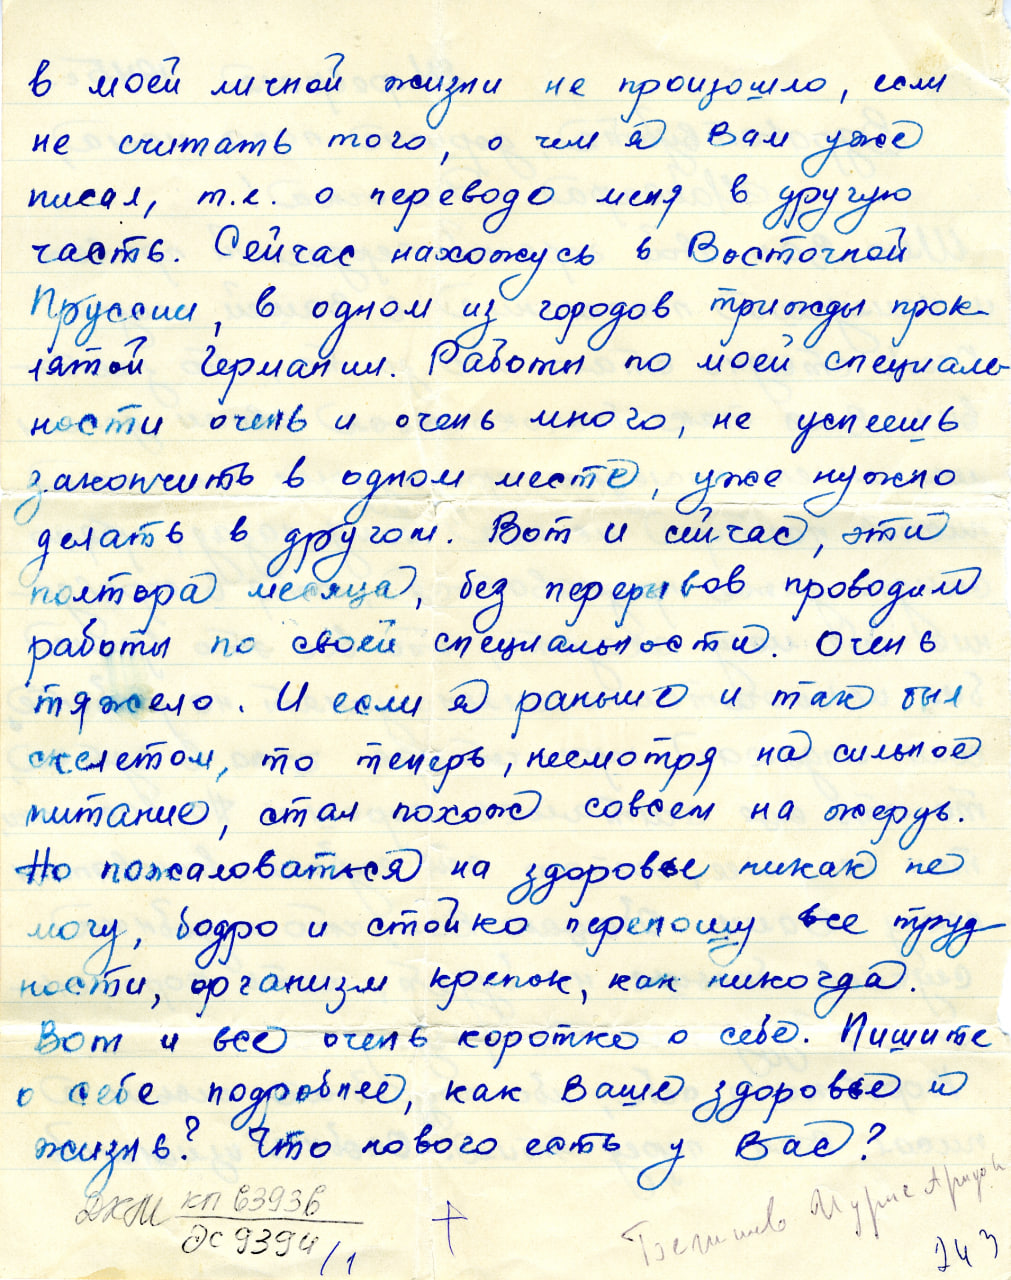 в моей личной жизни не произошло, если
не считать того, о чем я Вам уже
писал, т.е. о переводе меня в другую
часть. Сейчас нахожусь в Восточной
Пруссии, в одном из городов трижды прок-
лятой Германии. Работы по моей специаль-
ности очень и очень много, не успеешь
закончить в одном месте, уже нужно
делать в другом. Вот и сейчас, эти
полтора месяца, без перерывов проводим
работы по своей специальности. Очень
тяжело. И если я раньше и так был
скелетом, то теперь, несмотря на сильное
питание, стал похож совсем на жердь.
Но пожаловаться на здоровье никак не
могу, бодро и стойко переношу все труд-
ности, организм крепок, как никогда.
Вот и все очень коротко о себе. Пишите
о себе подробнее, как Ваше здоровье и
жизнь? Что нового есть у Вас?
КП 63936
9394/1
243